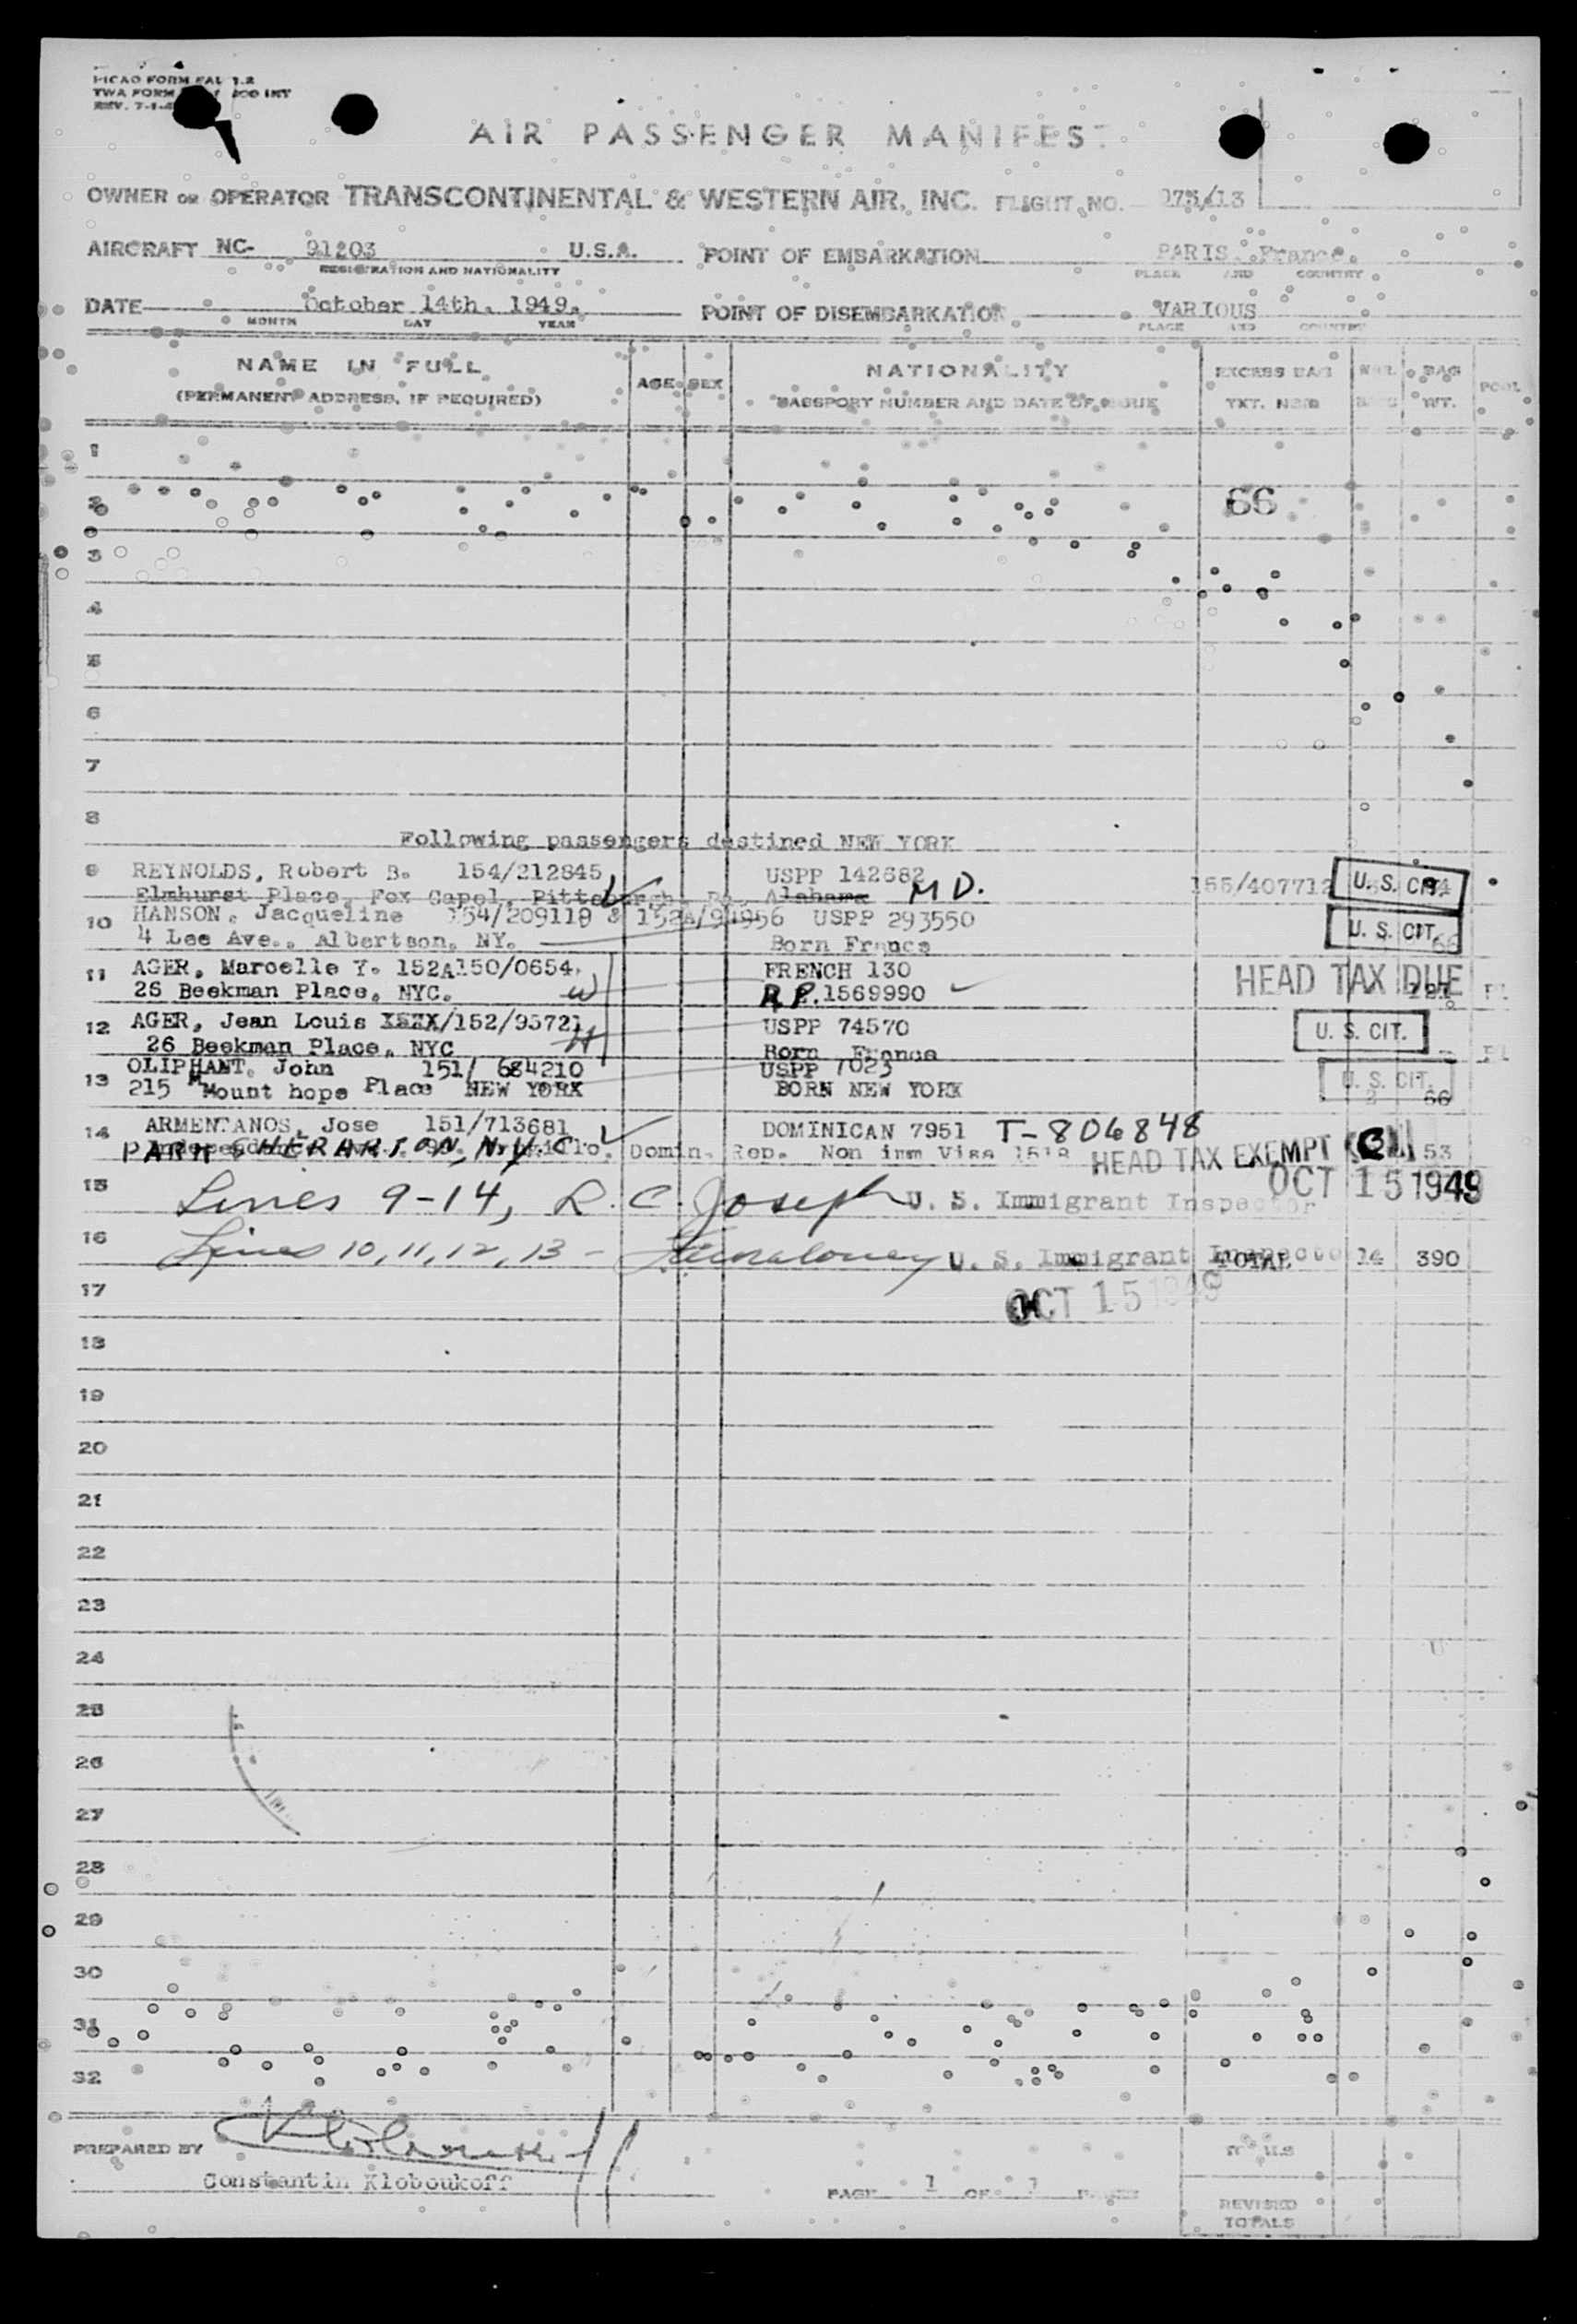 PICAO FORM FAL 1.2
TWA FORM
REV.
AIR PASSENGER MANIFES
OWNER OR OPERATOR TRANSCONTINENTAL & WESTERN AIR, INC. FLIGHT NO. 175/13
AIRCRAFT NC- 91203 U.S.A. POINT OF EMBARKATION PARIS, France.
REGISTRATION AND NATIONALITY PLACE AND COUNTRY
DATE October 14th. 1949. POINT OF DISEMBARKATION VARIOUS
MONTH DAY YEAR PLACE AND COUNTRY
NAME IN FULL AGE SEX NATIONALITY EXCESS BAG BAG POOL
(PERMANENT ADDRESS, IF REQUIRED) PASSPORT NUMBER AND DATE OF ISSUE TKT. WT.
1
2 66
3
4
5
6
7
8
Following passengers destined NEW YORK
9 REYNOLDS, Robert B. 154/212845 USPP 142682 155/407712 U. S. CIT.
Elmhurst Place, Fox Capel, Pittsburgh Pa. Alabama MD.
10 HANSON, Jacqueline 154/209118 & 152A/94956 USPP 293550 U. S. CIT. 66
4 Lee Ave., Albertson, NY. Born France
11 AGER, Marcelle Y. 152A150/0654 FRENCH 130 HEAD TAX DUE
26 Beekman Place, NYC. W R.P. 1569990
12 AGER, Jean Louis XXXX/152/95721 USPP 74570 U. S. CIT.
26 Beekman Place, NYC H Born France
13 OLIPHANT, John 151/ 684210 USPP 7023 U. S. CIT.
215 Mount hope Place NEW YORK BORN NEW YORK 66
14 ARMENTANOS, Jose 151/713681 DOMINICAN 7951 T-806848
PARK SHERARTON, N.Y.C. Domin. Rep. Non imm Visa HEAD TAX EXEMPT 53
OCT 15 1949
15 Lines 9-14, R. C. Joseph U. S. Immigrant Inspector
16 Lines 10, 11, 12, 13 - U. S. Immigrant Inspector TOTAL 14 390
OCT 15 1949
17
18
19
20
21
22
23
24
25
26
27
28
29
30
31
32
PREPARED BY
Constantin Kloboukoff
PAGE 1 OF 1 PAGES
REVISED
TOTALS